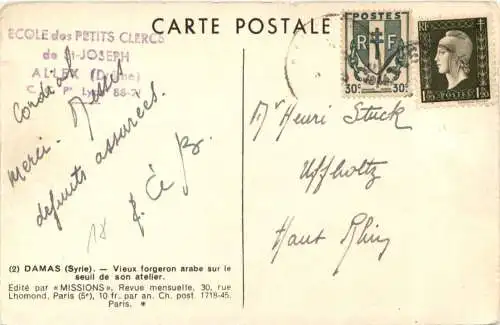 CARTE POSTALE
ECOLE des PETITS CLERCS
de St-JOSEPH
ALLEX (Drôme)
POSTES
RF
30c 30c
RF
1F50 POSTES
Cordial
Merci. Messes
défunts assurées.
18
Mr Henri Stuck
Uffholtz
Haut Rhin
(2) DAMAS (Syrie). — Vieux forgeron arabe sur le
seuil de son atelier.
Édité par «MISSIONS», Revue mensuelle, 30, rue
Lhomond, Paris (5e), 10 fr. par an. Ch. post. 1718-45,
Paris. *